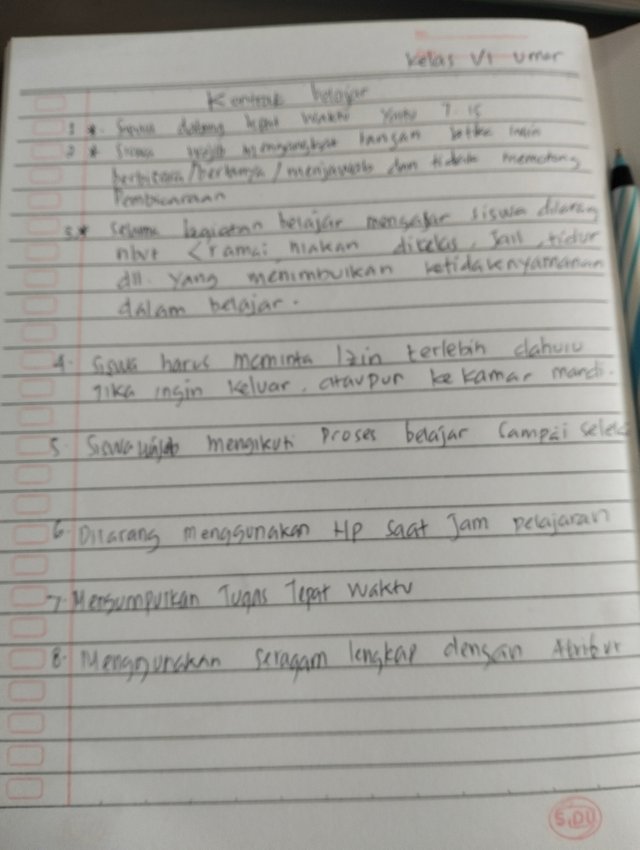 Kelas VI Umar
Kontrak belajar
1 * Siswa datang tepat waktu yaitu 7.15
2 * Siswa wajib mengangkat tangan ketika ingin
berbicara/bertanya/menjawab dan tidak memotong
Pembicaraan
3 * Selama kegiatan belajar mengajar siswa dilarang
ribut <ramai, makan dikelas, Jail, tidur
dll. yang menimbulkan ketidaknyamanan
dalam belajar.
4. Siswa harus meminta Izin terlebih dahulu
Jika ingin keluar, ataupun ke kamar mandi.
5. Siswa wajib mengikuti Proses belajar Sampai seles
6. Dilarang menggunakan HP saat Jam pelajaran
7. Mengumpulkan Tugas Tepat waktu
8. Menggunakan seragam lengkap dengan Atribut
SiDU